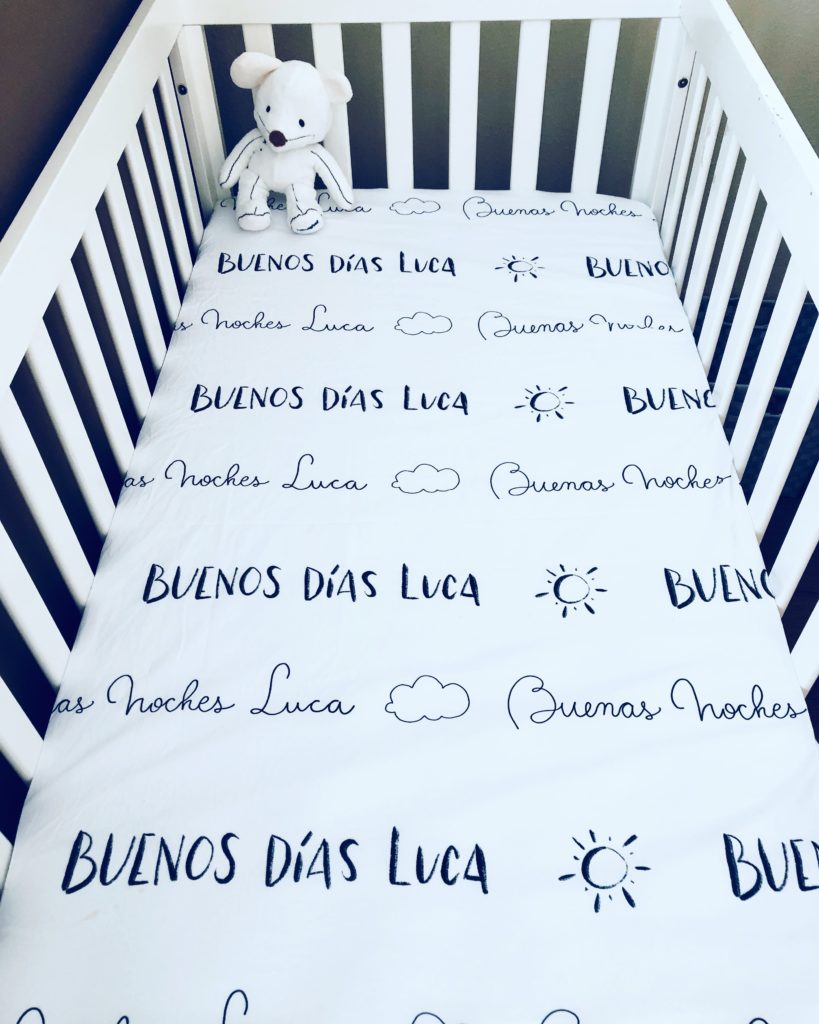 Luca Buenas Noches
BUENOS DÍAS LUCA BUENO
s Noches Luca Buenas Noches
BUENOS DÍAS LUCA BUENO
as Noches Luca Buenas Noches
BUENOS DÍAS LUCA BUENO
as Noches Luca Buenas Noches
BUENOS DÍAS LUCA BUEN